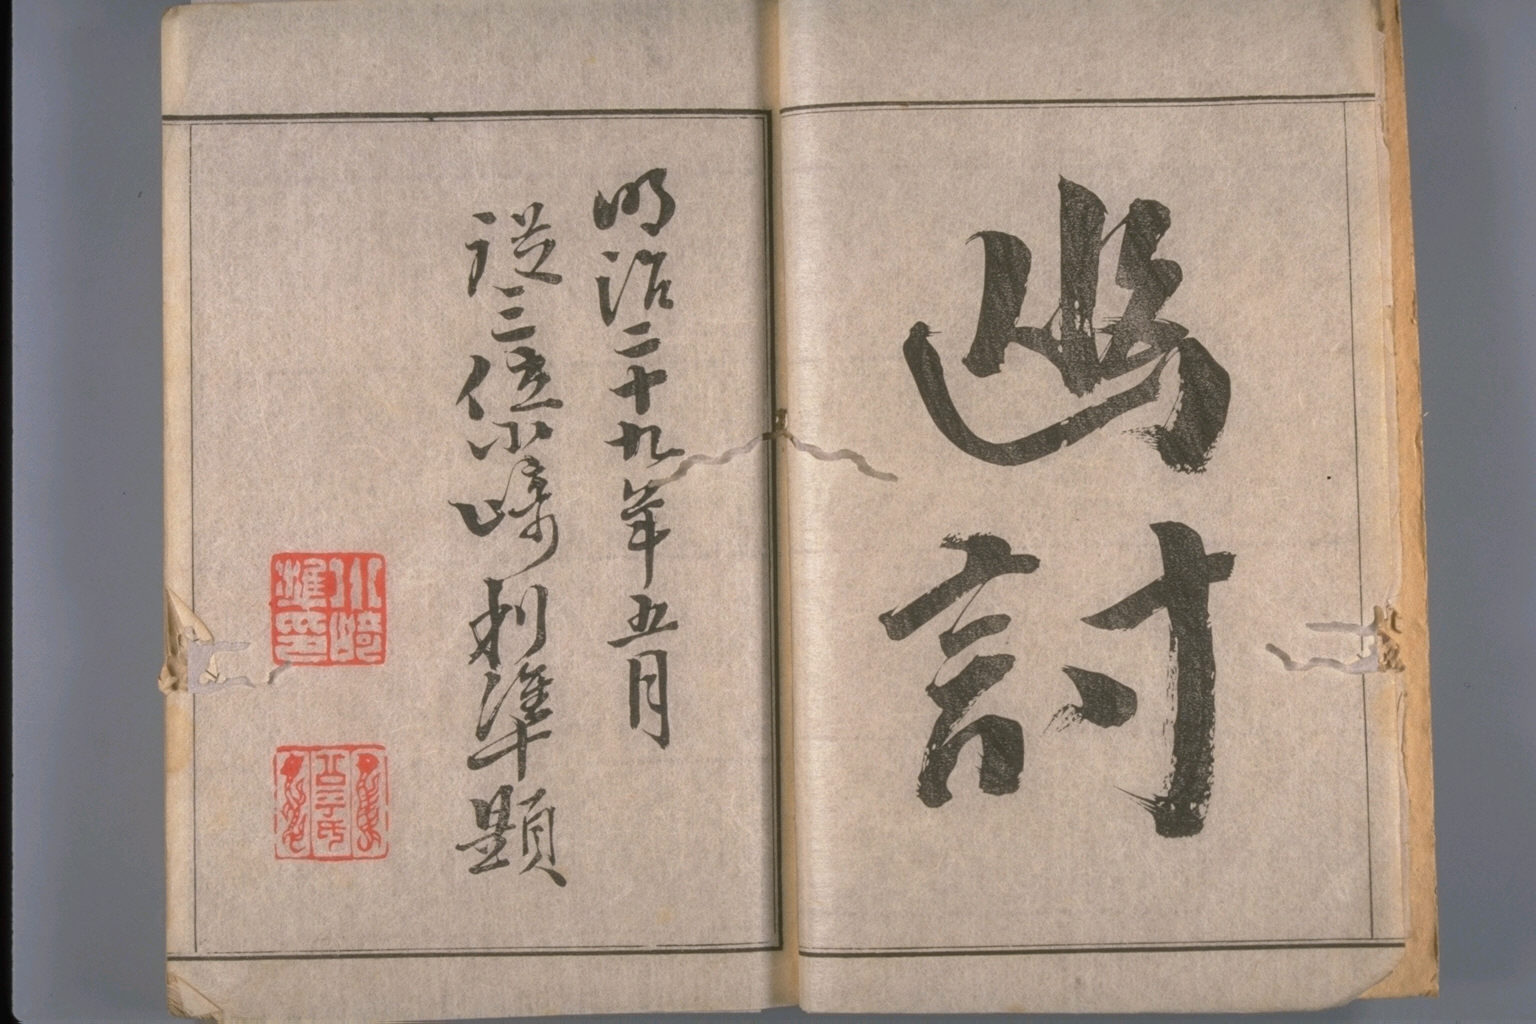 幽討
明治二十九年五月
従三位小崎利準題
小崎